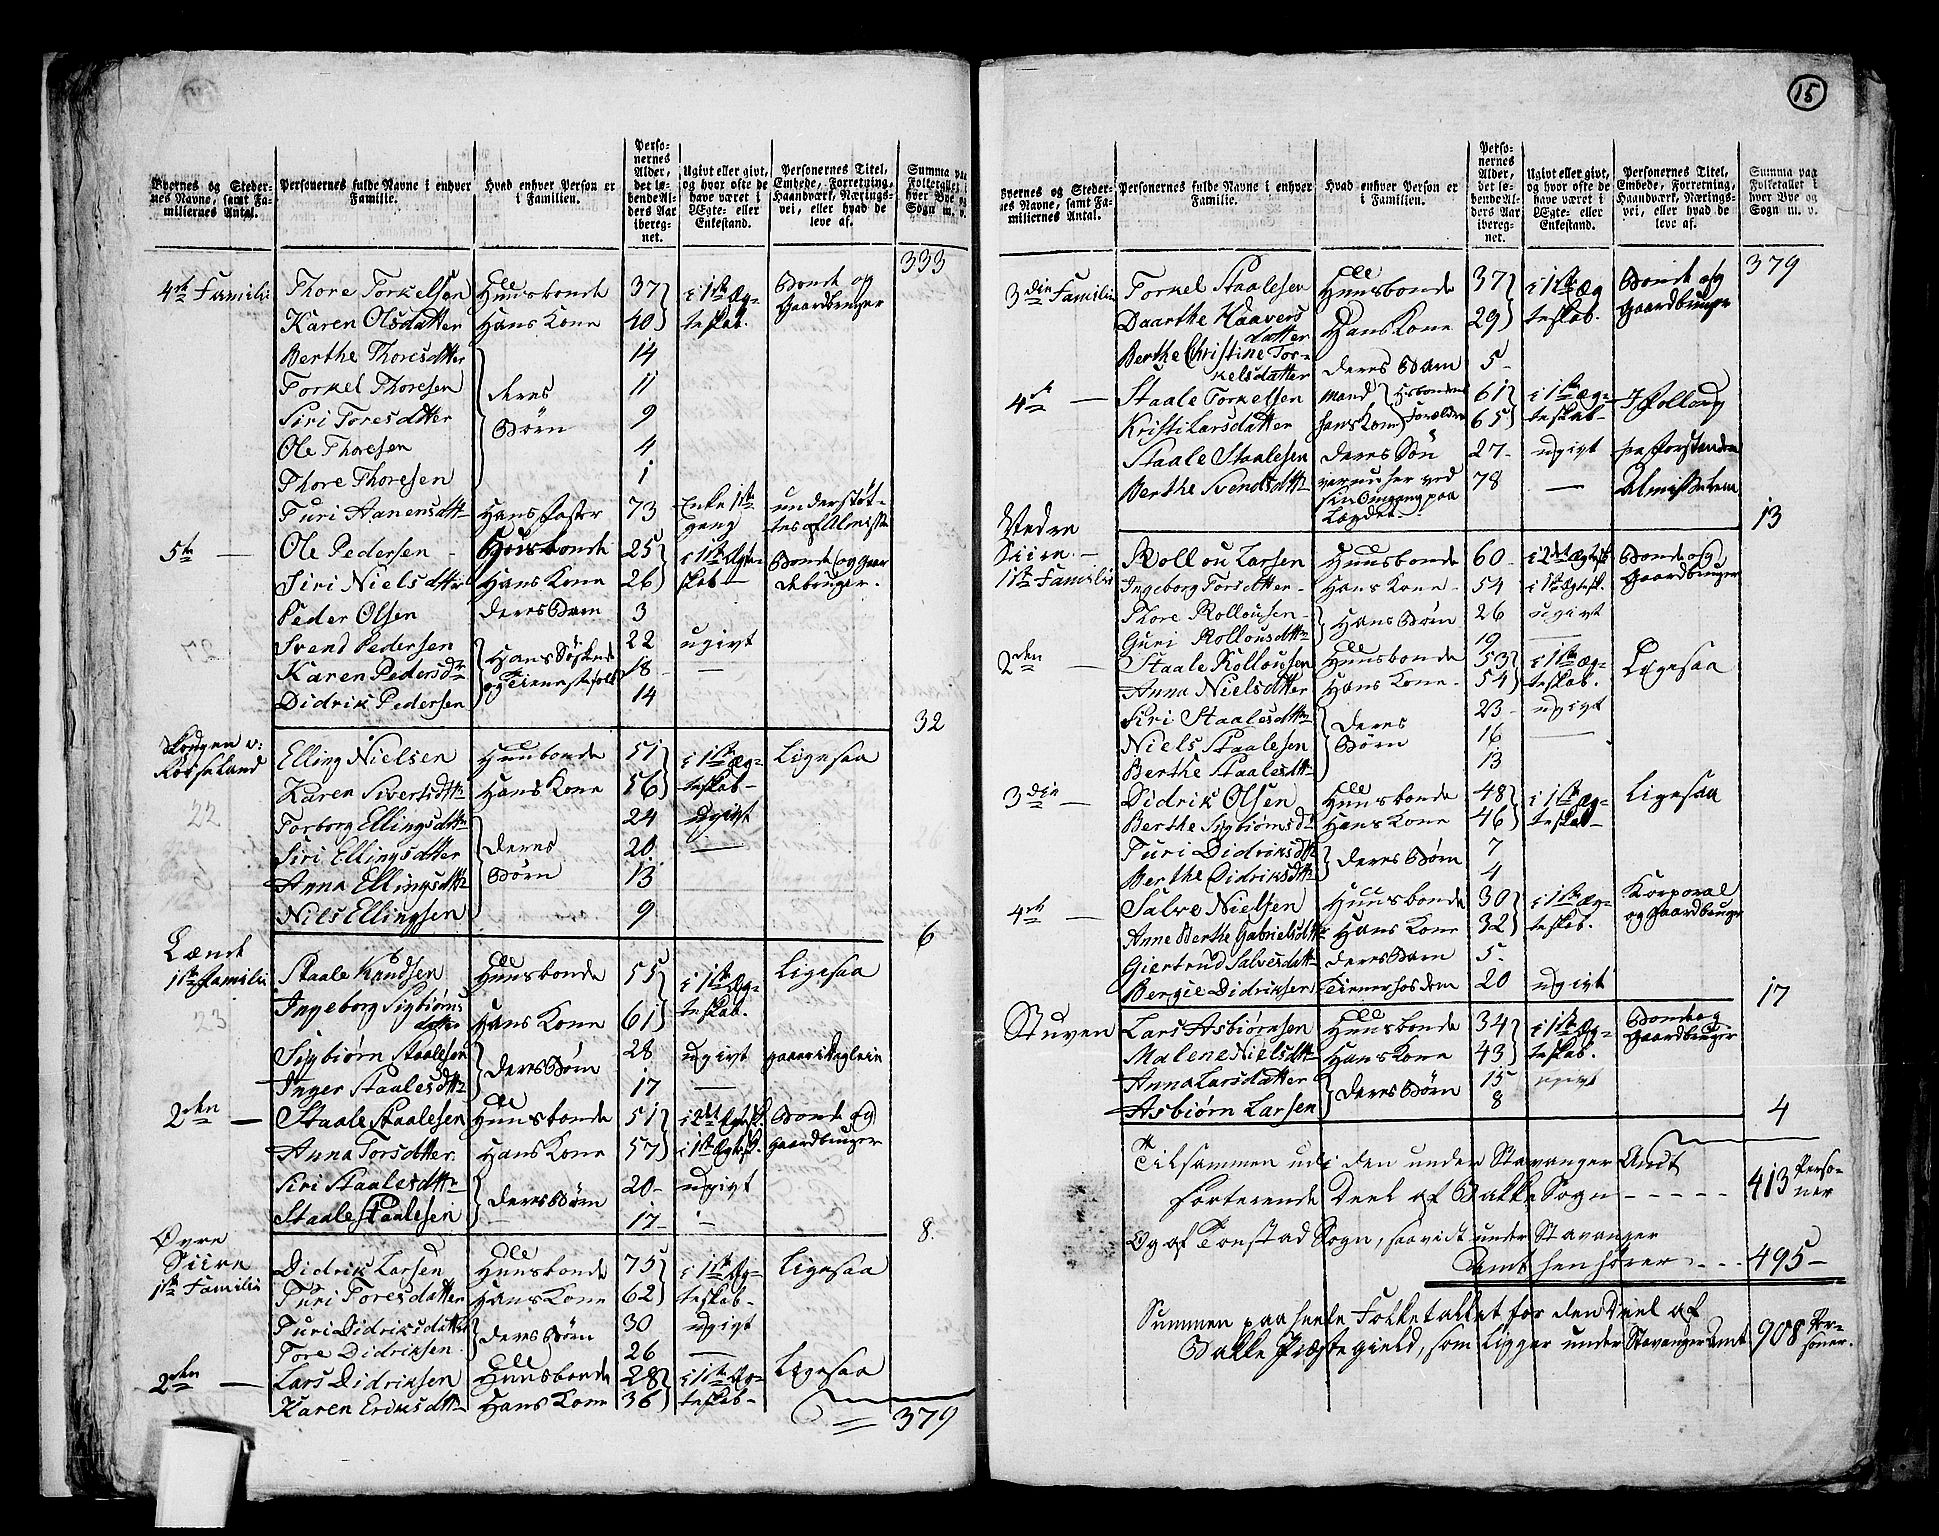 Byernes og Steder-
nes Navne, samt Fa-
miliernes Antal.
Personernes fulde Navne i enhver
Familie.
Hvad enhver Person er
i Familien.
Perso-
nernes
Alder,
det le-
bende Al-
ders Aar
iberegnet.
Ugivt eller givt,
og hvor ofte de
have været i
Ægte- eller
Enkestand.
Personernes Titel,
Embede, Forretning,
Haandværk, Nærings-
vei, eller hvad de
leve af.
Summa paa
Folketallet i
hver Bye og
Sogn m. v.
333
4de Familie Thore Torkelsen Huusbonde 37 i 1ste Æg- Bonde og
Karen Olsdatter Hans Kone 40 teskab. Gaardbruger
Berthe Thoresdtter 14
Torkel Thoresen deres 11
Siri Toresdatter 9
Ole Thoresen Børn 4
Thore Thoresen 1
Turi Aanensdttr Hans Faster 73 Enke 1ste understøt-
gang tes af Almisse
5te — Ole Pedersen Huusbonde 25 i 1ste Ægte- Bonde og Gaar
Siri Nielsdttr Hans Kone 26 skab debruger.
Peder Olsen deres Barn 3
Svend Pedersen Hans Søskende 22 ugivt
Karen Pedersdr og Tienestefolk 18 —
Didrik Pedersen 14
32
Skougen v:
Kaaseland Elling Nielsen Huusbonde 51 i 1ste Æg- Ligesaa
Karen Sivertsdttr Hans Kone 56 teskab
22 Torborg Ellingsdttr 24 ugivt
Siri Ellingsdatter deres 20 —
Anna Ellingsdttr Børn 13
Nils Ellingsen 9
6
Lændt
1ste Familie Staale Knudsen Huusbonde 55 i 1ste Æg- Ligesaa
23 Ingeborg Sigbiørns
datter Hans Kone 61 teskab.
Sigbiørn Staalesen deres Børn 28 ugivt gaaer i Dagleie
Inger Staalesdttr 17 —
2den — Staale Staalesen Huusbonde 51 i 2det Ægtesk. Bonde og
Anna Torsdatter Hans Kone 57 i 1ste Ægtesk. Gaardbruger
Siri Staalesdttr deres Børn 20 ugivt
Staale Staalesen 17
8.
Øvre
Siire
1ste Familie Didrik Larsen Huusbonde 75 i 1ste Æg- Ligesaa
Turi Toresdatter Hans Kone 62 teskab
Turi Didriksdatter deres Børn 30 ugivt
Tore Didriksen 26 —
2den — Lars Didriksen Huusbonde 28 i 1ste Æg- Ligesaa
Karen Eriksdttr Hans Kone 36 teskab
379
15
Byernes og Steder-
nes Navne, samt Fa-
miliernes Antal.
Personernes fulde Navne i enhver
Familie.
Hvad enhver Person er
i Familien.
Perso-
nernes
Alder,
det le-
bende Al-
ders Aar
iberegnet.
Ugivt eller givt,
og hvor ofte de
have været i
Ægte- eller
Enkestand.
Personernes Titel,
Embede, Forretning,
Haandværk, Nærings-
vei, eller hvad de
leve af.
Summa paa
Folketallet i
hver Bye og
Sogn m. v.
379
3die Familie Torkel Staalesen Huusbonde 37 i 1ste Æg Bonde og
Daarthe Haavers
datter Hans Kone 29 teskab. Gaardbruger
Berthe Christine Tor-
kelsdatter deres Barn 5
4de — Staale Torkelsen Mand Hsbondens 61 i 1ste Æg- Follaug
Kristi Larsdatter hans Kone Forældre 65 teskab
Staale Staalesen deres Søn 27 ugivt
Berthe Svendsdttr ved
sin Omgang paa
Lægdet 78 — Almisselem
13
Nedre
Siire. —
1ste Familie Rollou Larsen Huusbonde 60 i 2det Ægtesk Bonde og
Ingeborg Torsdatter Hans Kone 54 i 1ste Ægtesk. Gaardbruger
Thore Rollousen Hans Børn 26 ugivt
Guri Rollousdttr 19 —
2den — Staale Rollousen Huusbonde 53 i 1ste Æg- Ligesaa
Anna Nielsdatter Hans Kone 54 teskab.
Siri Staalesdttr deres 23 ugivt
Niels Staalesen Børn 16 —
Berthe Staalesdttr 13
3die — Didrik Olsen Huusbonde 48 i 1ste Æg- Ligesaa
Berthe Sigbiørnsdr Hans Kone 46 teskab
Turi Didriksdttr deres Børn 7
Berthe Didriksdttr 4
4de — Salve Nielsen Huusbonde 30 i 1ste Æg- Korporal
Anne Berthe Gabrielsdttr Hans Kone 32 teskab. og Gaardbruger
Giertrud Salvesdttr deres Barn 5
Bergie Didriksen Tiener hos dem 20 ugivt
17
Stuven Lars Asbiørnsen Huusbonde 34 i 1ste Æg- Bonde og
Malene Nielsdttr Hans Kone 43 teskab. Gaardbruger
Anna Larsdatter deres Børn 15 ugivt
Asbiørn Larsen 8
4
Tilsammen udi den under Stavanger Amt
sorterende Deel af Bakke Sogn - - - - - 413 Perso-
ner
Og af Tonstad Sogn, saavidt under Stavanger
Amt henhører - - - 495 —
Summen paa heele Folketallet for den Deel af
Bakke Præstegield, som ligger under Stavanger Amt 908 Per-
soner.